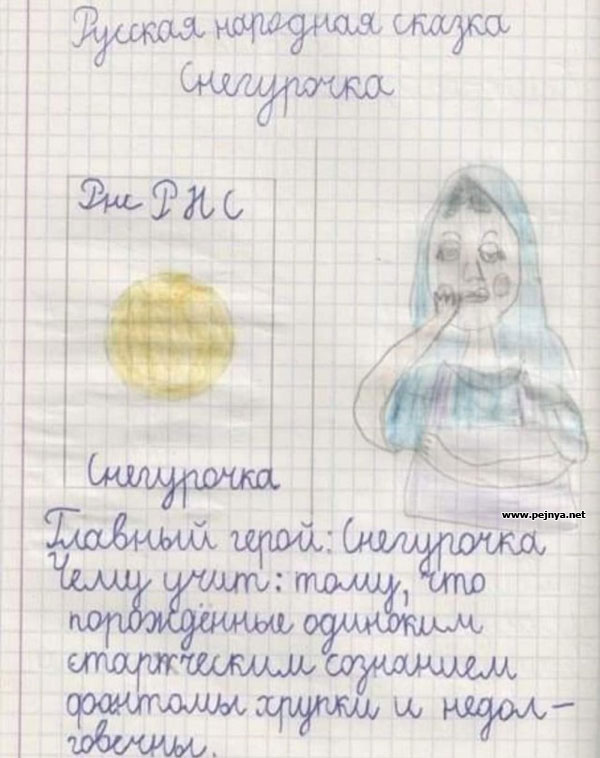 Русская народная сказка
Снегурочка
РНС
Снегурочка
www.pejnya.net
Главный герой: Снегурочка
Чему учит: тому, что
порождённые одиноким
старческим сознанием
фантомы хрупки и недол-
говечны.